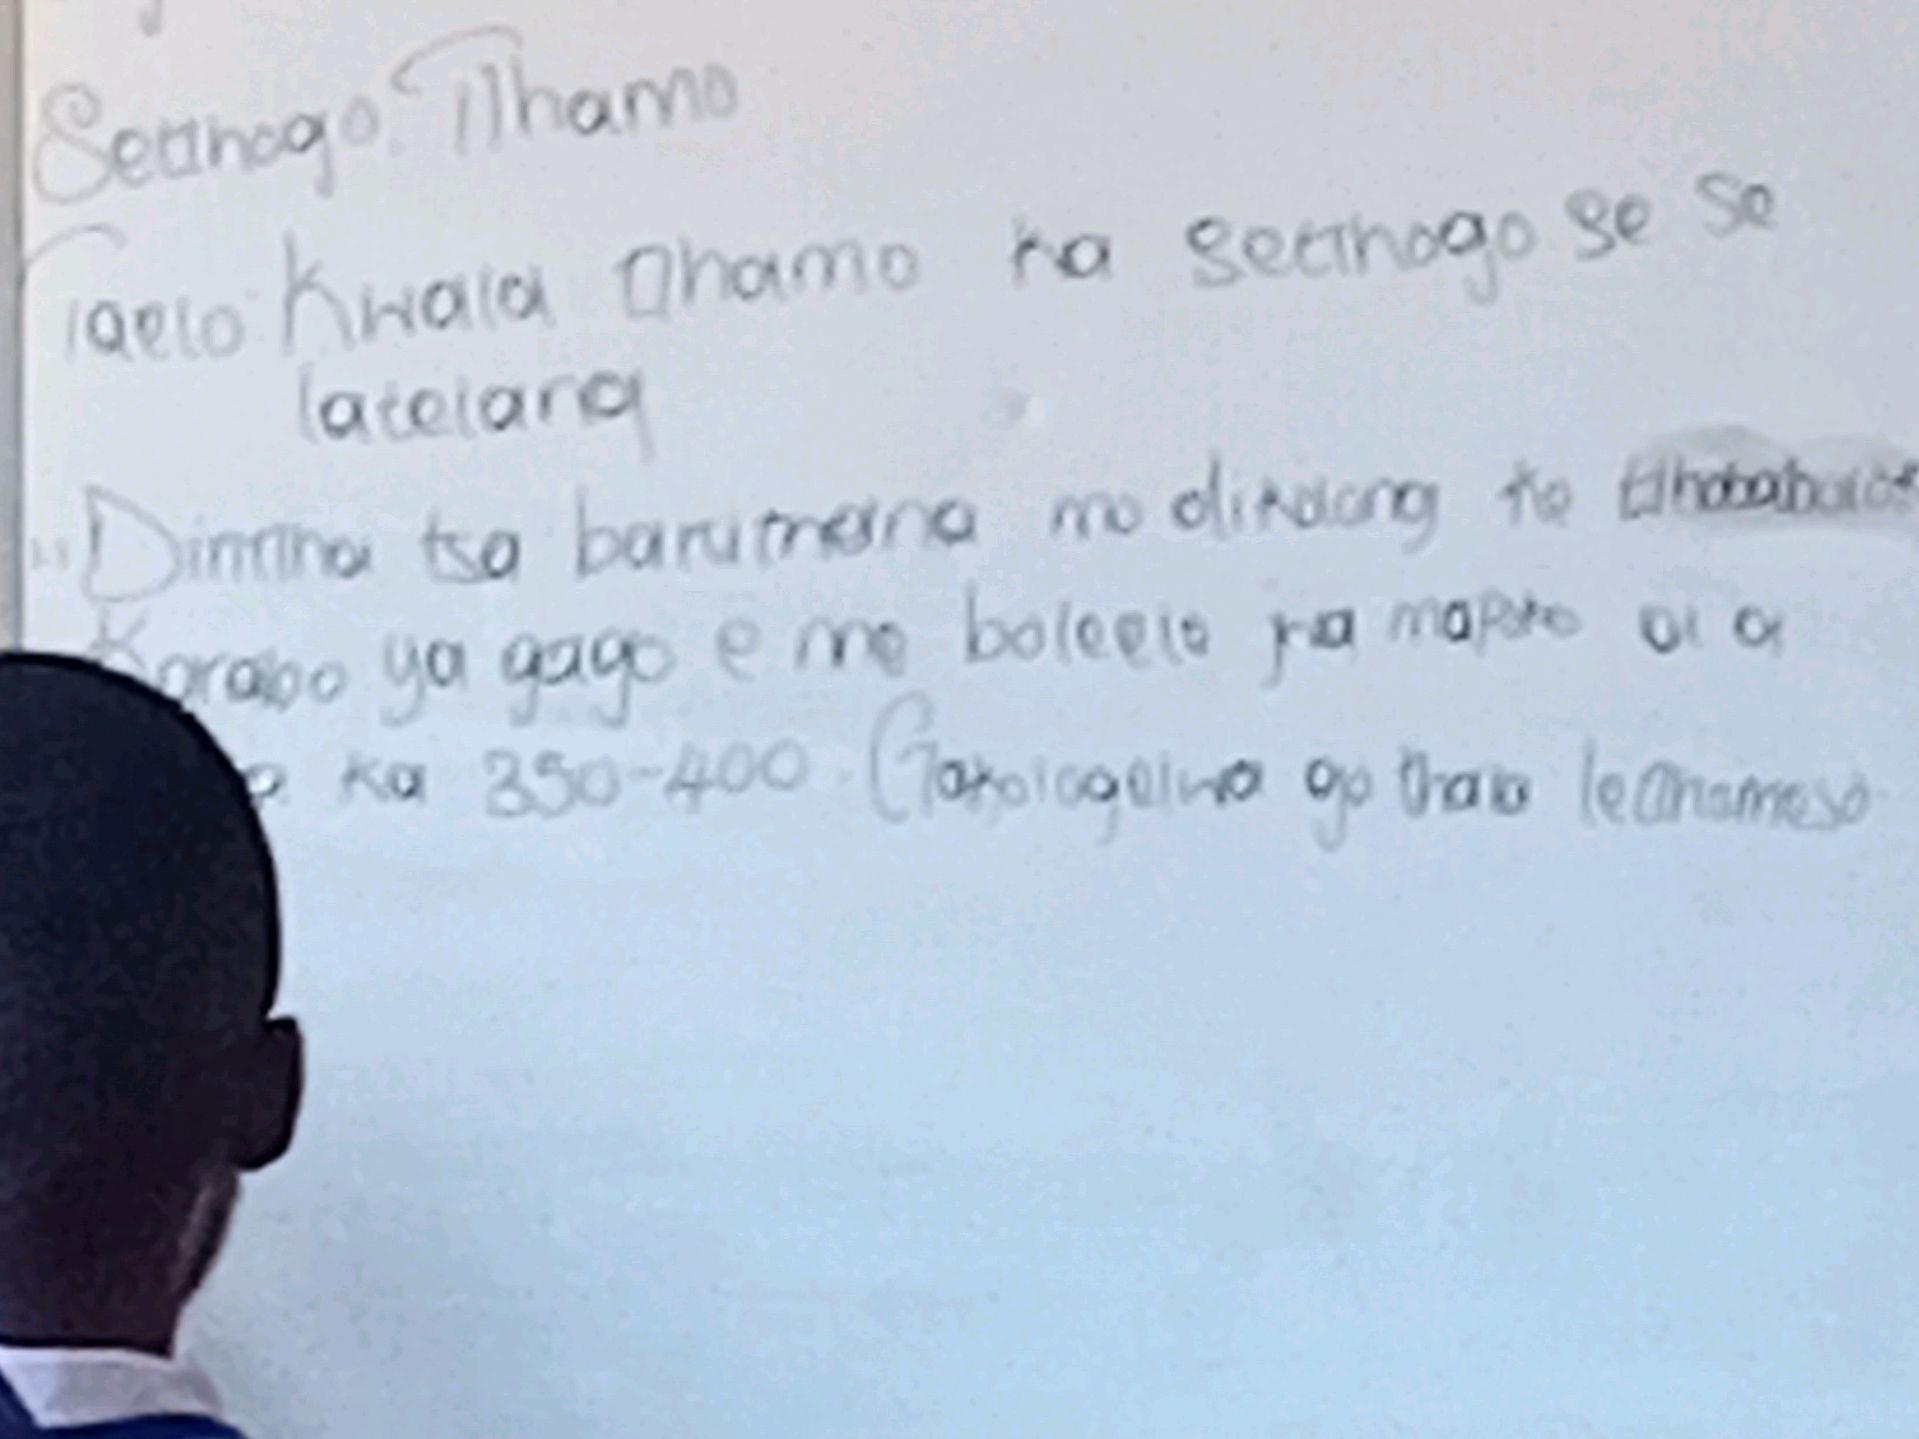 Setlhogo: Tlhamo
Taelo: Kwala tlhamo ka setlhogo se se
latelang
Dintlha tsa barutwana mo dikolong ke
Karabo ya gago e nne boleele ja mafoko a a
ka 350-400. Gakologelwa go thala letlhomeso